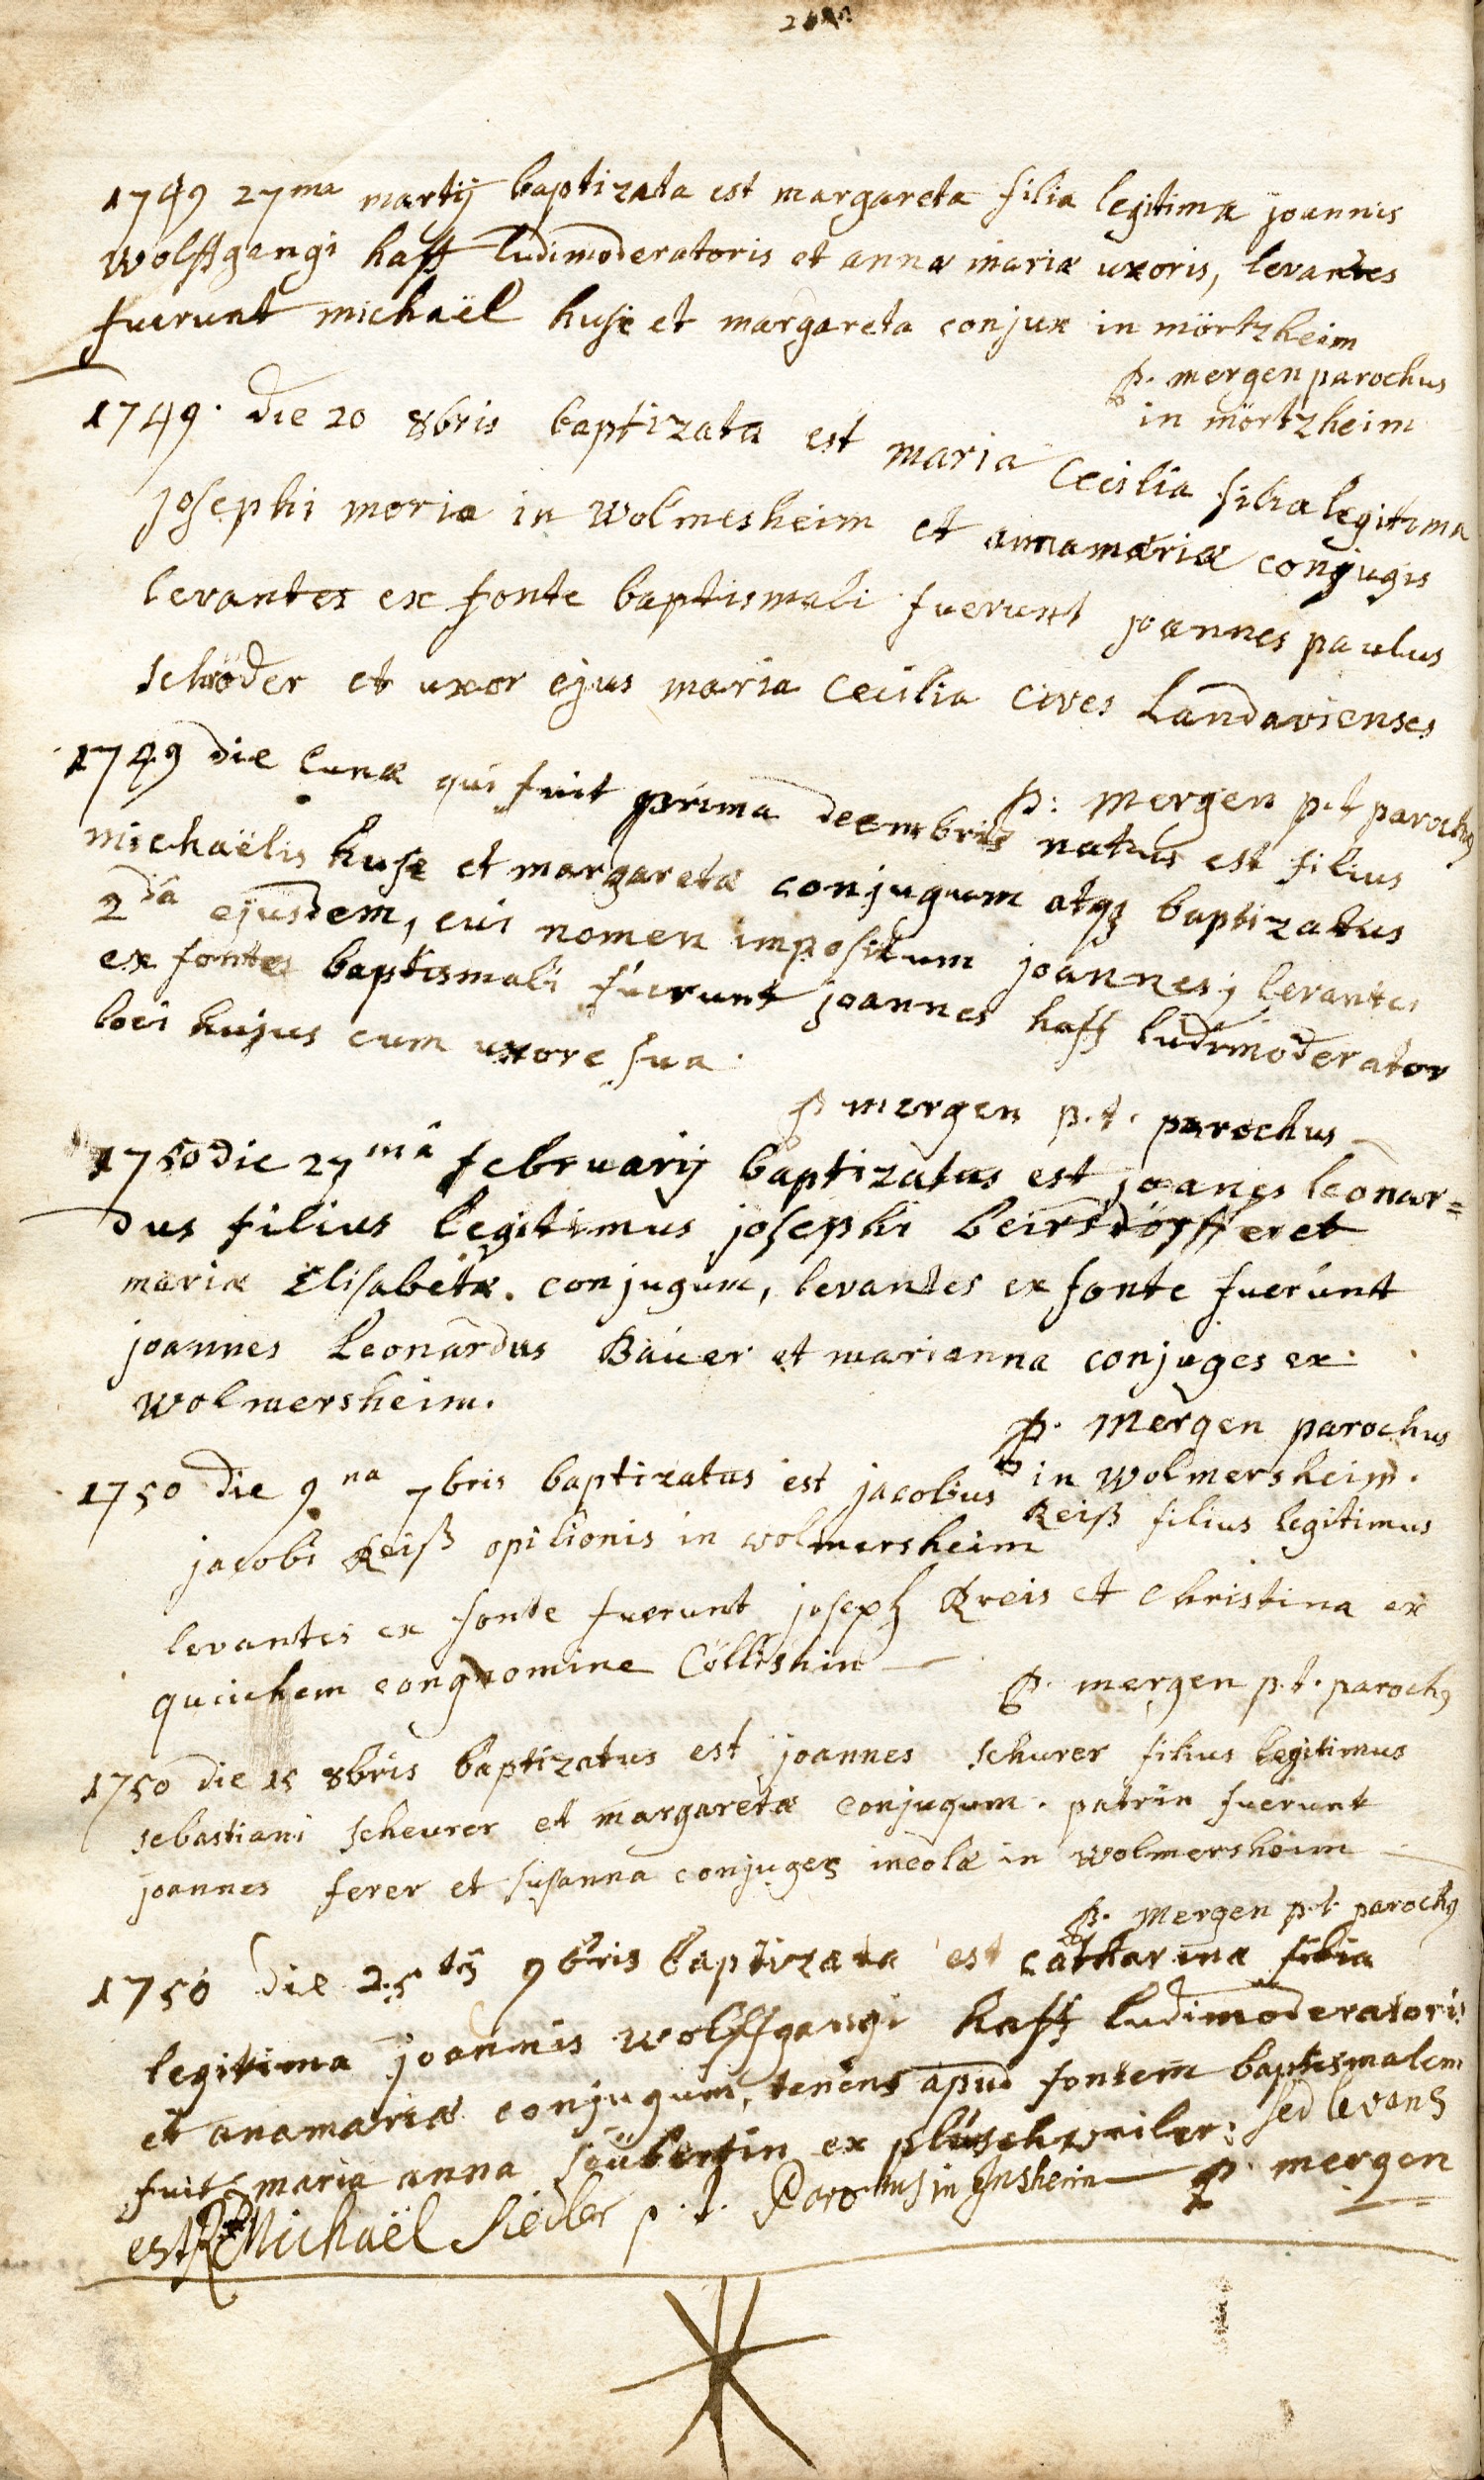 1749 27ma martij baptizata est margareta filia legitima joannis
wolffgangi haff ludimoderatoris et annæ mariæ uxoris, levantes
fuerunt michaël huse et margareta conjux in mörtzheim
p. mergen parochus
in mörtzheim
1749. die 20 8bris baptizata est maria Cecilia filia legitima
josephi moria in wolmesheim et annamariæ conjugis
levantes ex fonte baptismali fuerunt joannes paulus
schröder et uxor ejus maria Cecilia cives Landavienses
p: mergen p.t parochq
1749 die lunæ qui fuit prima decembris natus est filius
michaëlis huse et margaretæ conjugum atqz baptizatus
2da ejusdem, cui nomen impositum joannes; levantes
ex fontes baptismali fuerunt joannes haff ludimoderator
loci hujus cum uxore sua.
p mergen p.t. parochus
1750 die 27ma februarij baptizatus est joanes leonar=
dus filius legitimus josephi beirsdörffer et
mariæ Elisabetæ. conjugum, levantes ex fonte fuerunt
joannes Leonardus Bauer et marianna conjuges ex
wolmersheim.
p. mergen parochus
in wolmersheim.
1750 die 9na 7bris baptizatus est jacobus Reiß filius legitimus
jacobi Reiß opilionis in wolmersheim
levantes ex fonte fuerunt joseph Kreis et Christina ex
queichem congnomine Cöllishin
p. mergen p.t. parochq
1750 die 15 8bris baptizatus est joannes schurer filius legitimus
sebastiani scheurer et margaretæ conjugum. patrin fuerunt
joannes ferer et susanna conjuges incolæ in wolmersheim
p. mergen p.t. parochq
1750 die 25tâ 9bris baptizata est catharina filia
legitima joannis wolffgangi haff ludimoderatoris
et anamariæ conjugum, tenens apud fontem baptismalem
fuit maria anna seübertin ex plüschweiler: sed levans
est R. Michaël Siedler p.t. Parochus in Insheim p. mergen